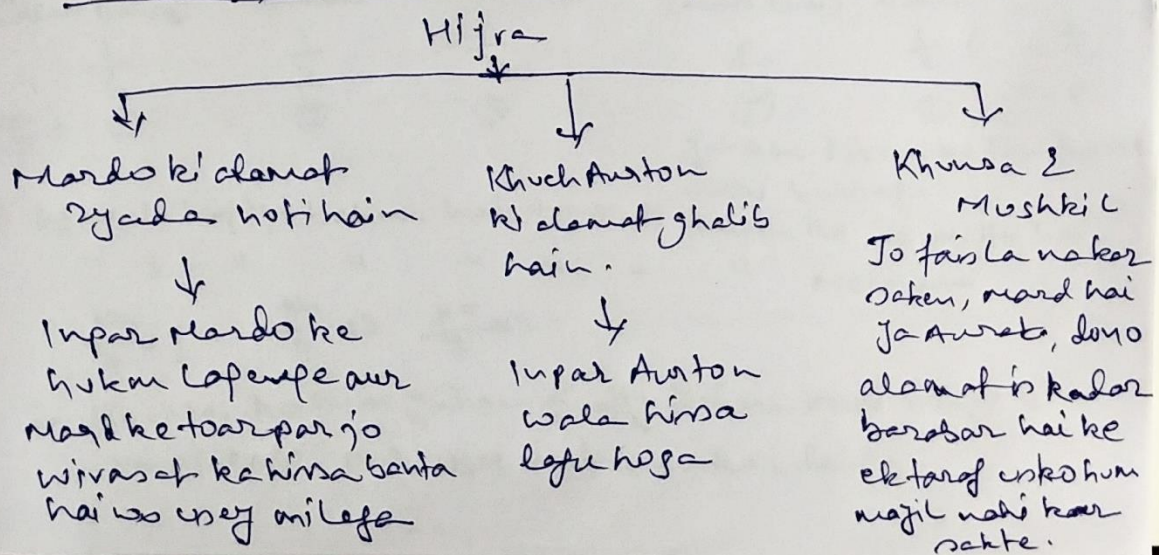 Hijra
Mardo ki alamat
zyada hoti hain
Inpar Mardo ke
hukm lagenge aur
Mard ke toar par jo
wirasat ka hissa banta
hai wo usey milega
Khuch Aurton
ki alamat ghalib
hain.
Inpar Aurton
wala hissa
lagu hoga
Khunsa e
Mushkil
Jo faisla na kar
saken, mard hai
ya Aurat, dono
alamat is kadar
barabar hai ke
ek taraf usko hum
majil nahi kar
sakte.